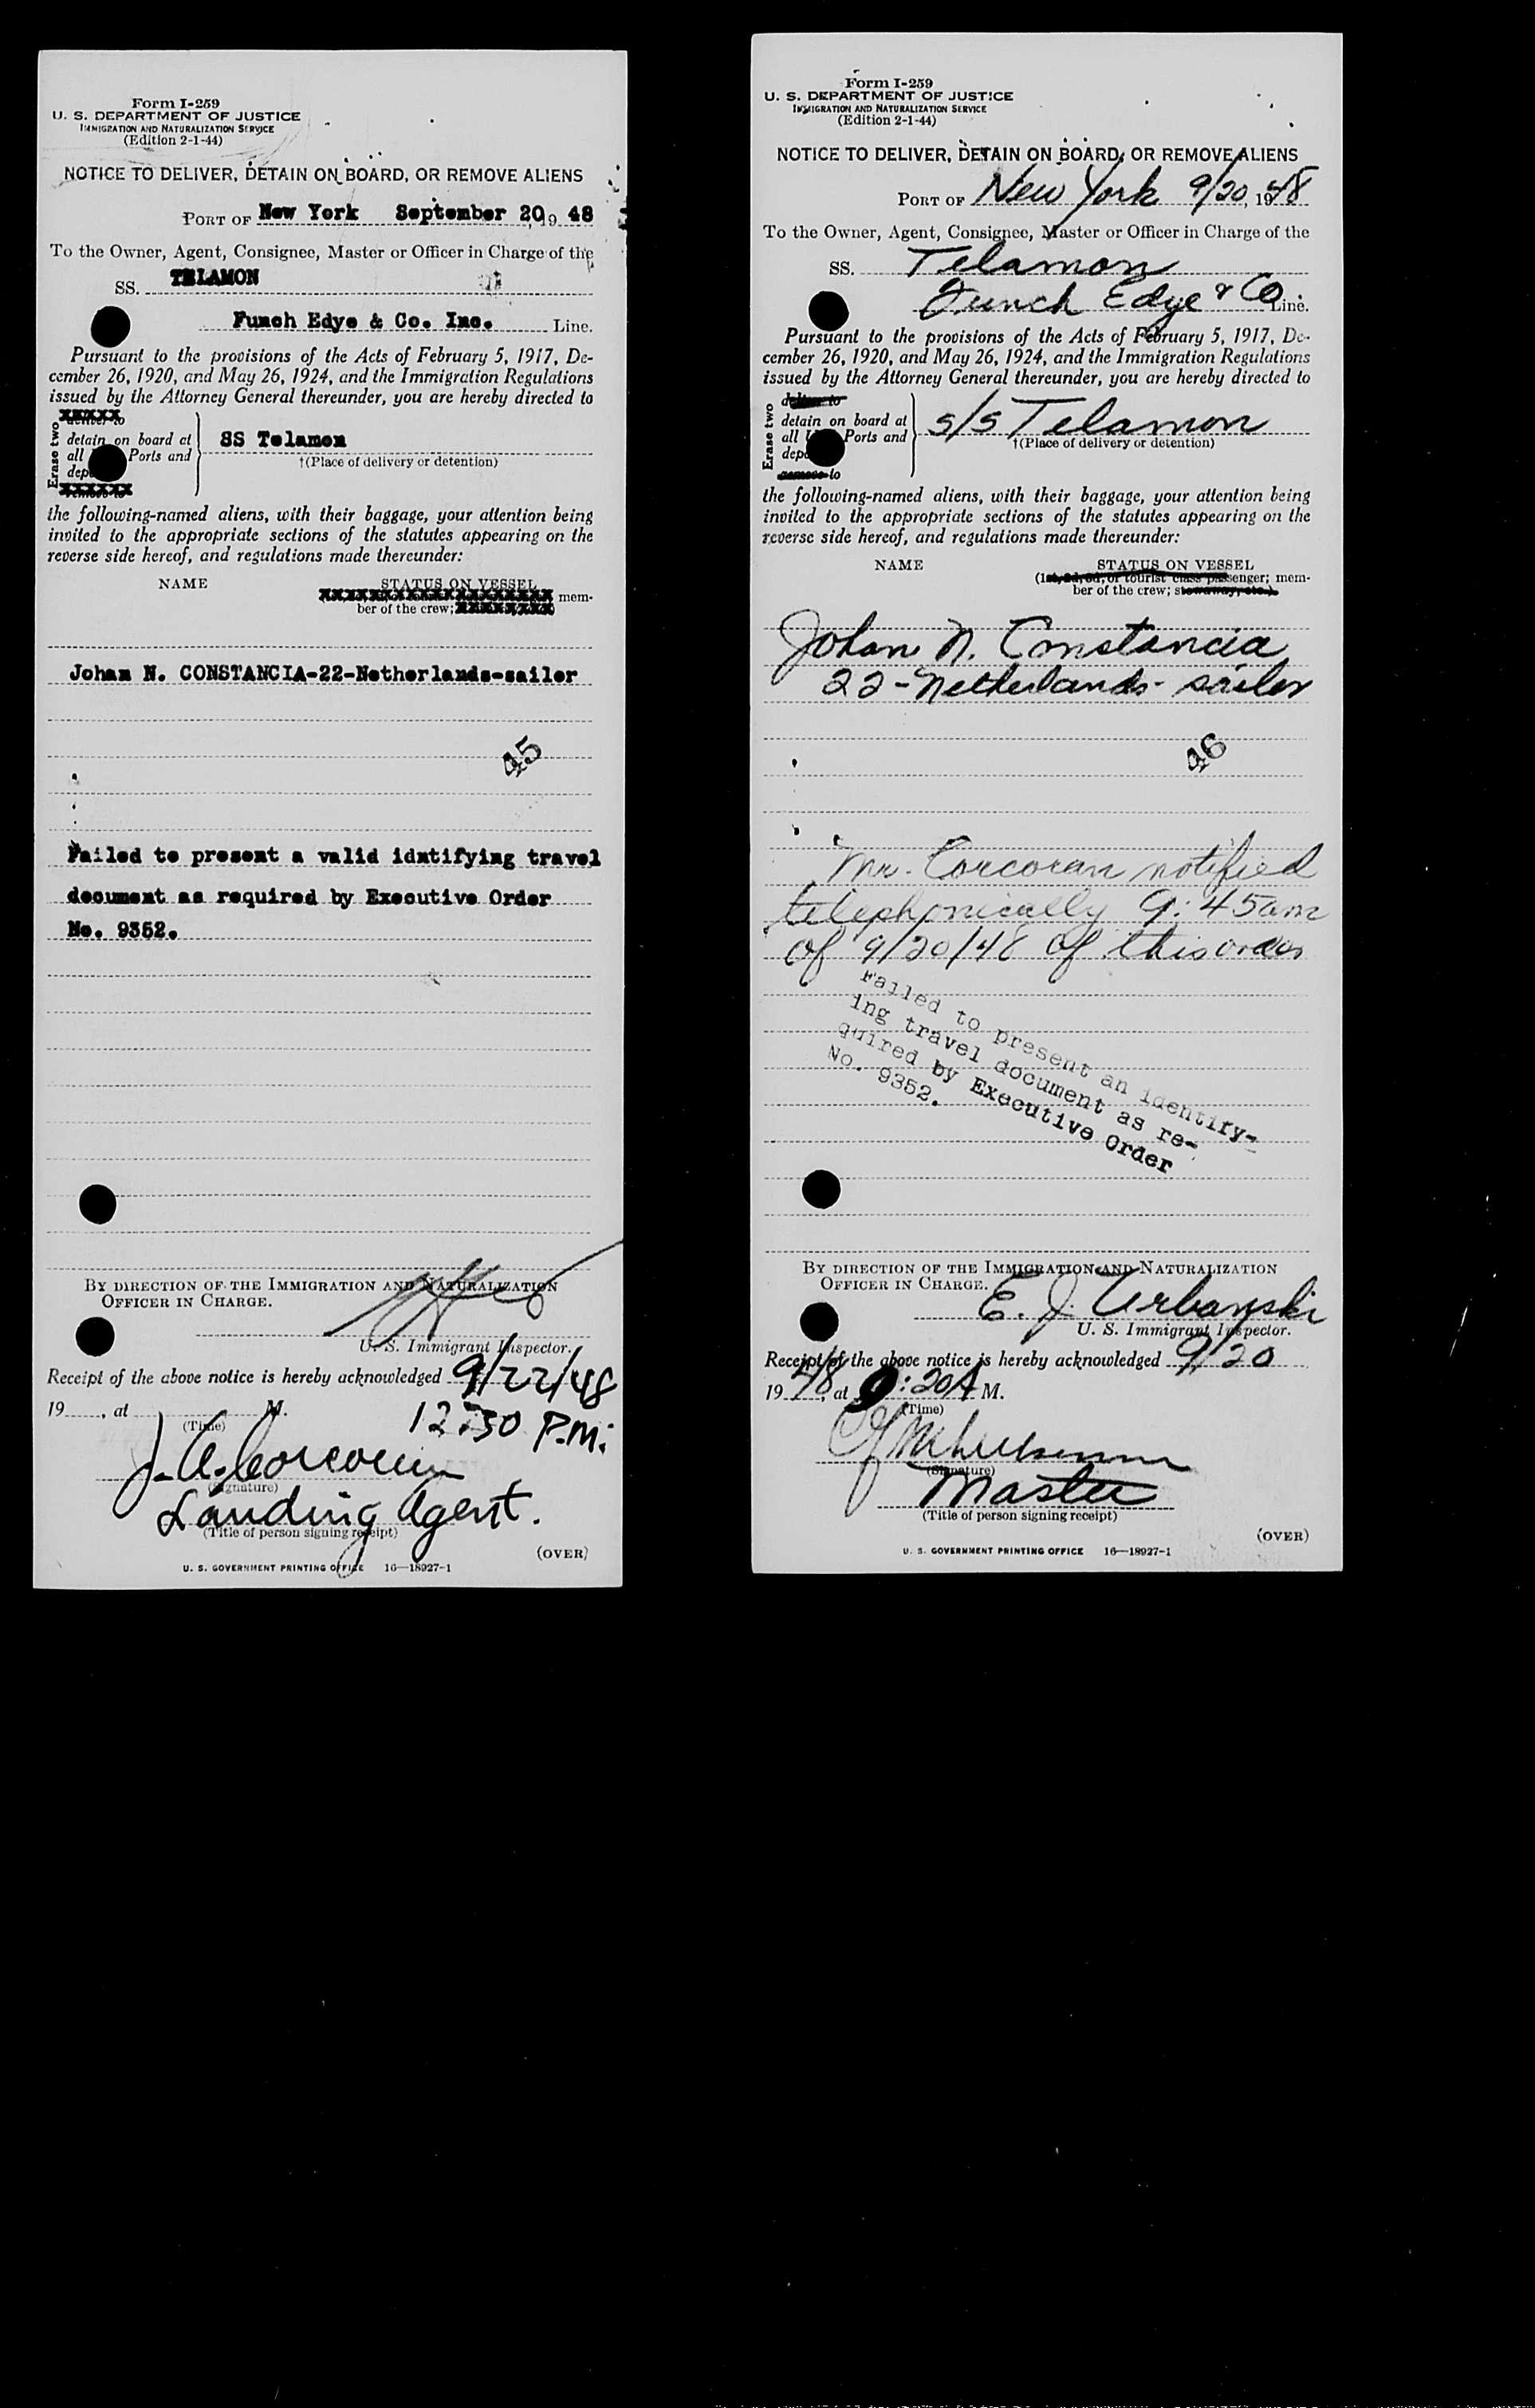 Form I-259
U. S. DEPARTMENT OF JUSTICE
IMMIGRATION AND NATURALIZATION SERVICE
(Edition 2-1-44)
NOTICE TO DELIVER, DETAIN ON BOARD, OR REMOVE ALIENS
PORT OF New York September 20, 19 48
To the Owner, Agent, Consignee, Master or Officer in Charge of the
SS. TELAMON
Funch Edye & Co. Inc. Line.
Pursuant to the provisions of the Acts of February 5, 1917, De-
cember 26, 1920, and May 26, 1924, and the Immigration Regulations
issued by the Attorney General thereunder, you are hereby directed to
Erase two
deliver to
detain on board at
all Ports and
dep
remove to
SS Telamon
†(Place of delivery or detention)
the following-named aliens, with their baggage, your attention being
invited to the appropriate sections of the statutes appearing on the
reverse side hereof, and regulations made thereunder:
NAME STATUS ON VESSEL
XXXXXXXXXXXXXXXXXXX mem-
ber of the crew; XXXXXXXX
Johan N. CONSTANCIA-22-Netherlands-sailor
45
Failed to present a valid idntifying travel
document as required by Executive Order
No. 9352.
BY DIRECTION OF THE IMMIGRATION AND NATURALIZATION
OFFICER IN CHARGE.
U. S. Immigrant Inspector.
Receipt of the above notice is hereby acknowledged 9/22/48
19 , at M. 12:30 P.M.
(Time)
J. A. Corcoran
(Signature)
Landing Agent.
(Title of person signing receipt)
(OVER)
U. S. GOVERNMENT PRINTING OFFICE 16—18927-1
Form I-259
U. S. DEPARTMENT OF JUSTICE
IMMIGRATION AND NATURALIZATION SERVICE
(Edition 2-1-44)
NOTICE TO DELIVER, DETAIN ON BOARD, OR REMOVE ALIENS
PORT OF New York 9/20, 1948
To the Owner, Agent, Consignee, Master or Officer in Charge of the
SS. Telamon
Funch Edye & Co. Line.
Pursuant to the provisions of the Acts of February 5, 1917, De-
cember 26, 1920, and May 26, 1924, and the Immigration Regulations
issued by the Attorney General thereunder, you are hereby directed to
Erase two
deliver to
detain on board at
all U Ports and
depa
remove to
s/s Telamon
†(Place of delivery or detention)
the following-named aliens, with their baggage, your attention being
invited to the appropriate sections of the statutes appearing on the
reverse side hereof, and regulations made thereunder:
NAME STATUS ON VESSEL
(1st, 2d, 3d, or tourist class passenger; mem-
ber of the crew; stowaway, etc.)
Johan N. Constancia
22-Netherlands-sailor
46
Mr. Corcoran notified
telephonically 9:45am
of 9/20/48 of this order
Failed to present an identify-
ing travel document as re-
quired by Executive Order
No. 9352.
BY DIRECTION OF THE IMMIGRATION AND NATURALIZATION
OFFICER IN CHARGE.
E. J. Urbanski
U. S. Immigrant Inspector.
Receipt of the above notice is hereby acknowledged 9/20
19 48, at 9:20 A M.
(Time)
(Signature)
Master
(Title of person signing receipt)
(OVER)
U. S. GOVERNMENT PRINTING OFFICE 16—18927-1